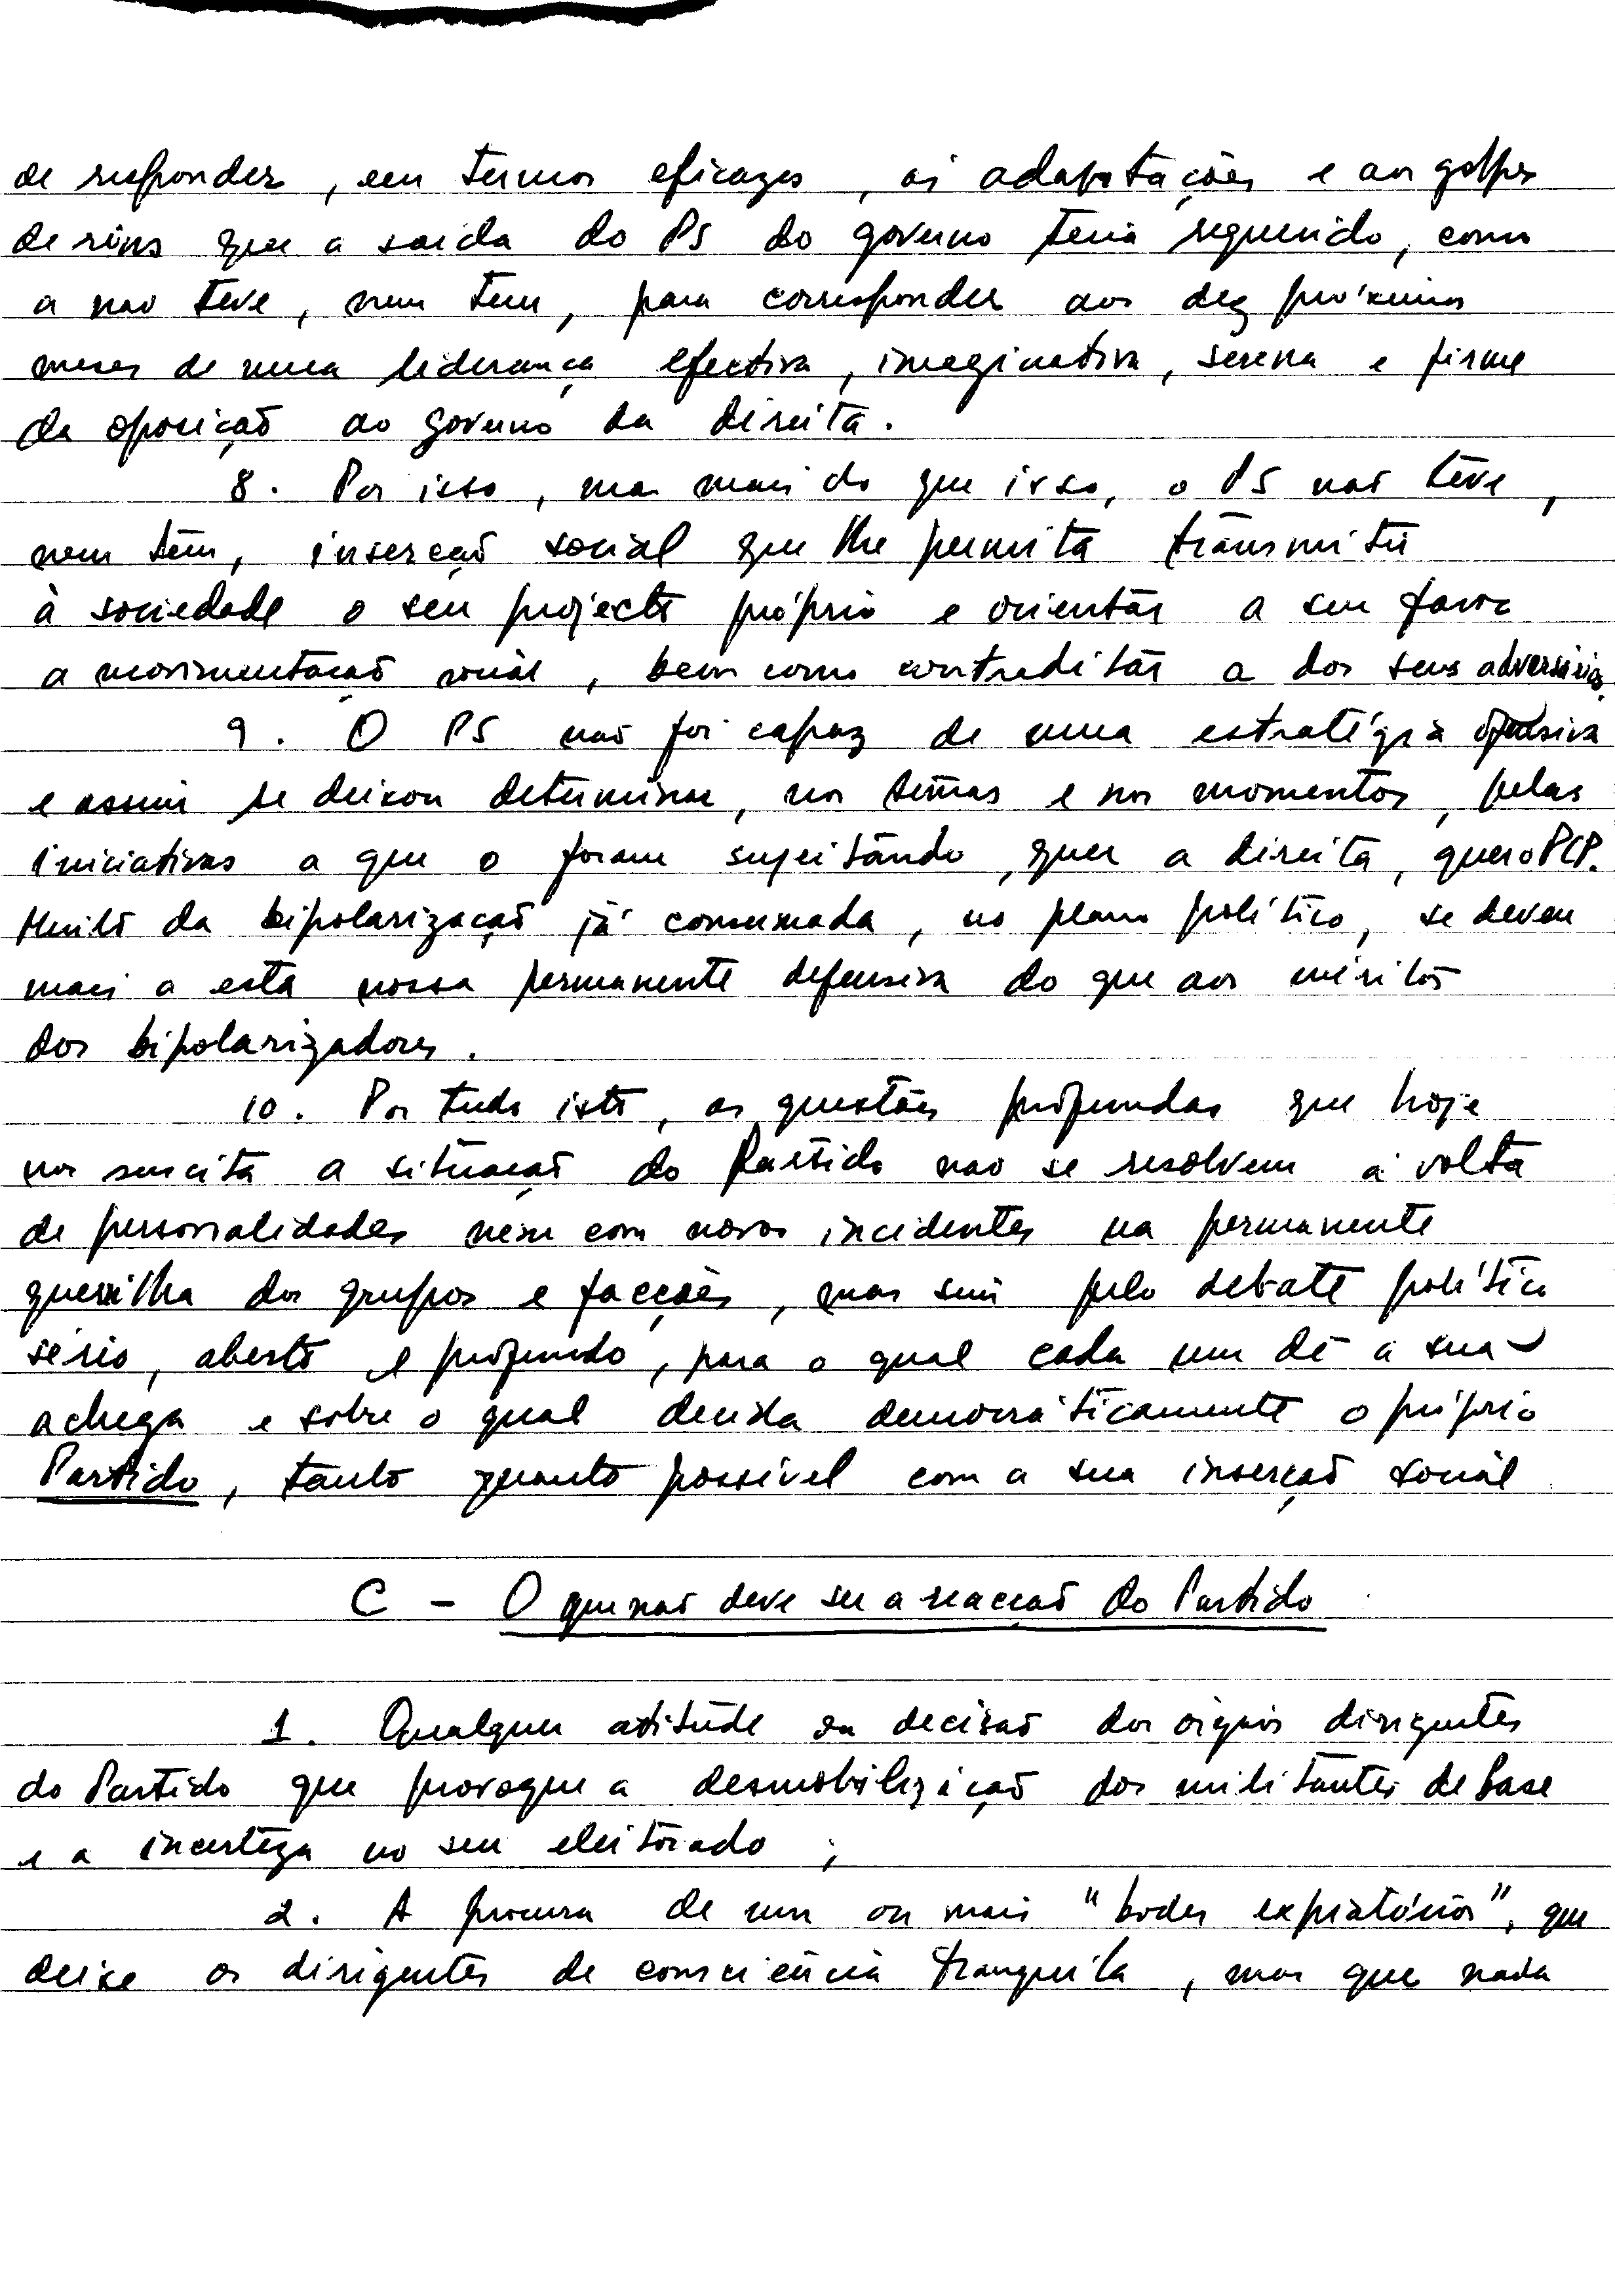 de responder, em termos eficazes, às adaptações e aos golpes
de rins que a saída do PS do governo teria requerido, como
a não teve, nem tem, para corresponder aos dez próximos
meses de uma liderança efectiva, imaginativa, serena e firme
da oposição ao governo da direita.
8. Por isso, mas mais do que isso, o PS não teve,
nem tem, inserção social que lhe permita transmitir
à sociedade o seu projecto próprio e orientar a seu favor
a movimentação social, bem como contraditar a dos seus adversários.
9. O PS não foi capaz de uma estratégia ofensiva
e assim se deixou determinar, nos temas e nos momentos, pelas
iniciativas a que o foram sujeitando, quer a direita, quer o PCP.
Muito da bipolarização já consumada, no plano político, se deveu
mais a esta nossa permanente defensiva do que aos méritos
dos bipolarizadores.
10. Por tudo isto, as questões profundas que hoje
nos suscita a situação do Partido não se resolvem à volta
de personalidades nem com novos incidentes na permanente
guerrilha dos grupos e facções, mas sim pelo debate político
sério, aberto e profundo, para o qual cada um dê a sua
achega e sobre o qual decida democráticamente o próprio
Partido, tanto quanto possível com a sua inserção social
C - O que não deve ser a reacção do Partido
1. Qualquer atitude ou decisão dos orgãos dirigentes
do Partido que provoque a desmobilização dos militantes de base
e a incerteza no seu eleitorado;
2. A procura de um ou mais "bodes expiatórios", que
deixe os dirigentes de consciência tranquila, mas que nada